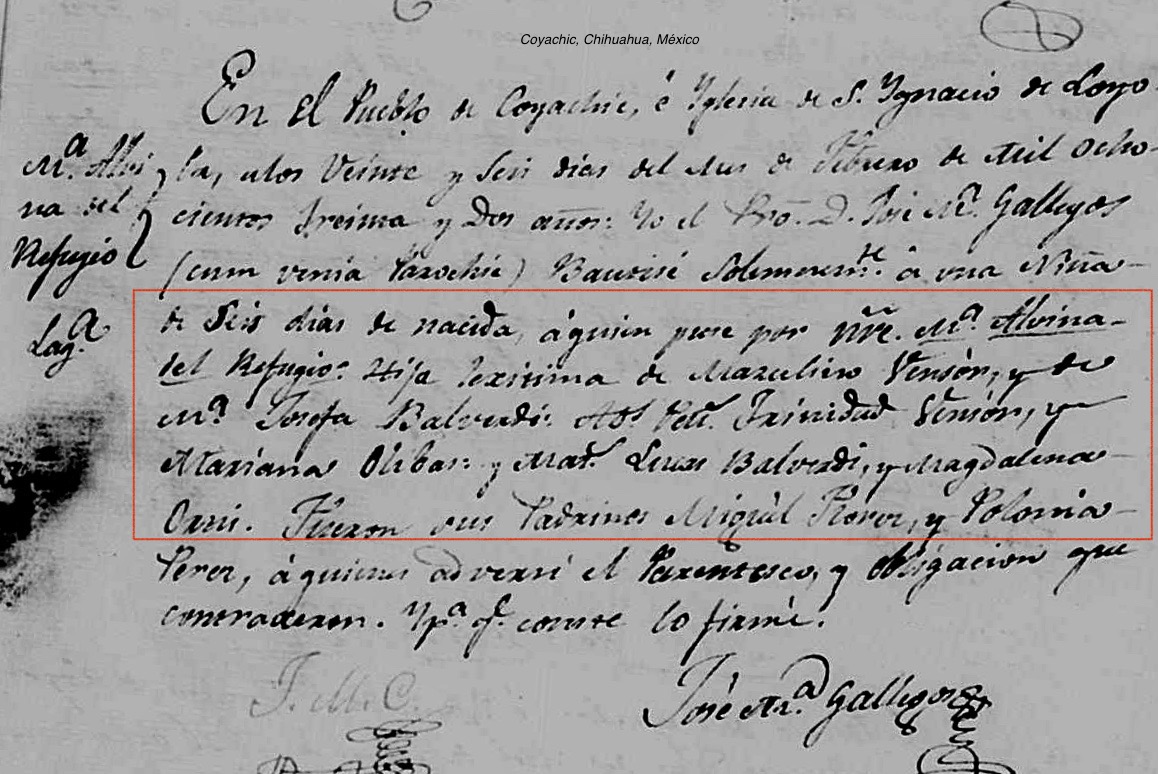 Coyachic, Chihuahua, México
En el Pueblo de Coyachic, é Yglesia de S. Ygnacio de Loyo-
la, alos Veinte y Seis dias del Mes de Febrero de Mil Ocho-
cientos Treinta y Dos años: Yo el Bro. D. José Ma. Gallegos
(cum venia Parochie) Bautisé Solemnemte. á una Niña
de Seis dias de nacida, áquien puse por nre. Ma. Alvina
del Refugio: Hija lexitima de Marcelino Vensor, y de
Ma. Josefa Balverdi: Abs. Pats. Trinidad Vensor, y
Mariana Olibas: y Mats. Lucas Balverdi, y Magdalena
Fueron sus Padrinos Miguel Perez, y Polonia
Perez, áquienes adverti el Parentesco, y obligacion que
contraxeron. Ypa. qe. conste lo firmé.
José Ma. Gallegos
J. M. C.
Ma. Albi
na del
Refugio
Laga.